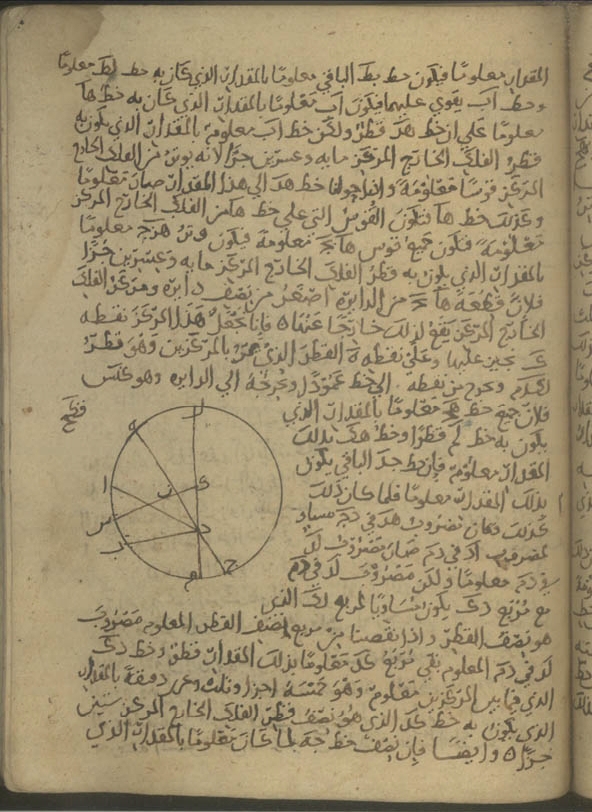 المقدار معلومًا فيكون خط بط الباقي معلومًا بالمقدار الذي كان به خط لط معلومًا
وخط آب يقوي عليهما فيكون آب معلومًا بالمقدار الذي كان به خط ها
معلومًا علي ان خط هد قطر ولكن خط اب معلوم بالمقدار الذي يكون به
قطر الفلك الخارج المركز مايه وعشرين جزًا لانه يوتر من الفلك الخارج
المركز قوسًا معلومة واذا حولنا خط هد الي هذا المقدار صار معلومًا
وكذلك خط ها فتكون القوس التي علي خط ها من الفلك الخارج المركز
معلومة فتكون جميع قوس هابج معلومة فيكون وتر هزج معلومًا
بالمقدار الذي يكون به قطر الفلك الخارج المركز مايه وعشرين جزًا
فلان قطعة هآ ج من الدايره اصغر من نصف دايره ومركز الفلك
الخارج المركز يقع لذلك خارجًا عنها فانا نجعل هذا المركز نقطه
ك ونجيز عليها وعلي نقطه د القطر الذي يمر بالمركزين وهو قطر
لكدم ونخرج من نقطه الي خط عمودًا ونخرجه الي الدايره وهو كنس
فلان جميع خط هج معلومًا بالمقدار الذي
يكون به خط لم قطرًا وخط هد بذلك
المقدار معلوم فان خط جد الباقي يكون
بذلك المقدار معلومًا فلما كان ذلك
كذلك وكان مضروب هد في دج مساو
لمضروب لد في دم صار مضروب لد
في دم معلومًا ولكن مضروب لد في دم
مع مربع دك يكون مساويًا لمربع لك الذي
هو نصف القطر واذا نقصنا من مربع نصف القطر المعلوم مضروب
لد في دم المعلوم بقي مربع كد معلومًا بذلك المقدار فطن وخط دك
الذي فيما بين المركزين معلوم وهو خمسة اجزا وثلث وعرر دقيقة بالمقدار
الذي يكون به خط كل الذي هو نصف قطر الفلك الخارج المركز ستين
جزًا وايضًا فان نصف خط جه لما كان معلومًا بالمقدار الذي
فطح
ل
ه
ا
ك
ن
س
ب
د
ج
م